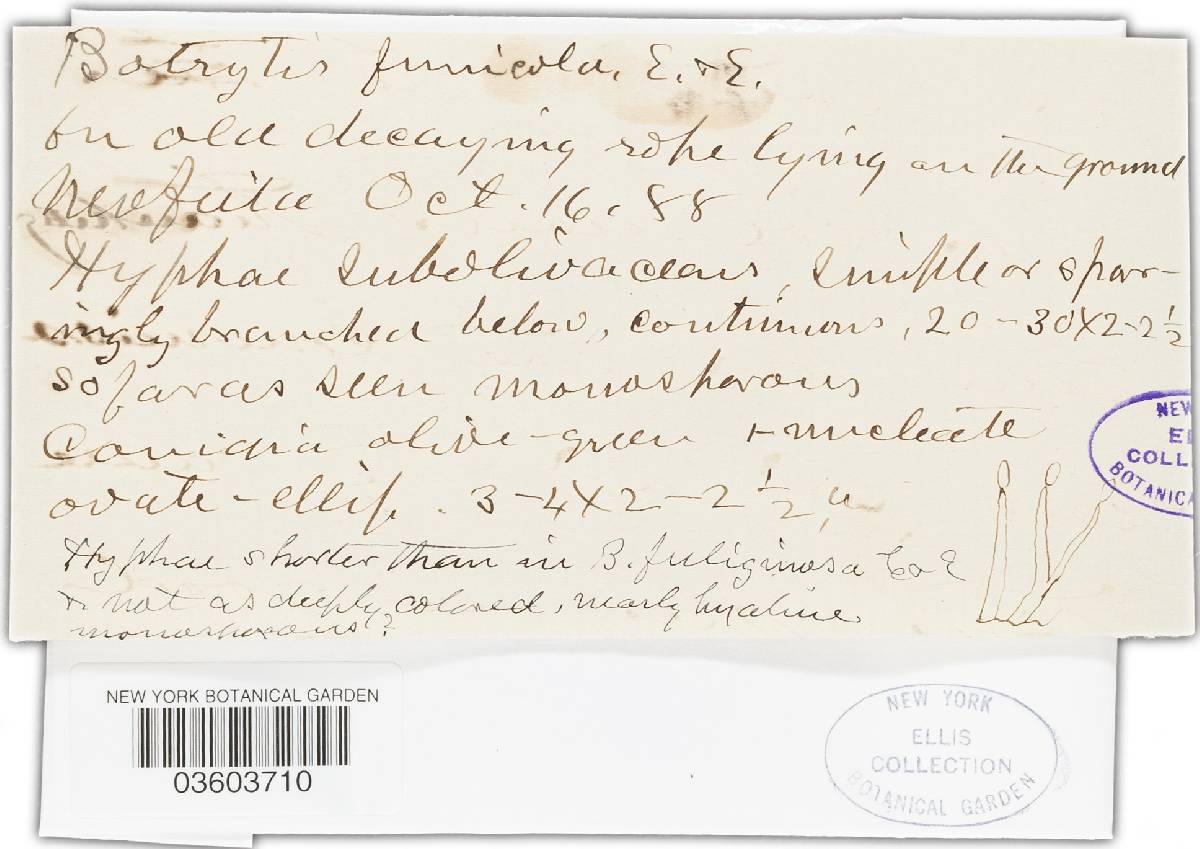 Botrytis funicola, E. & E.
On old decaying rope lying on the ground
Newfield Oct. 16, 88
Hyphae subolivaceous, simple or spar-
ingly branched below, continuous, 20-30X2-2½
so far as seen monosporous
Conidia olive-green 1-nucleate
ovate-ellip. 3-4X2-2½ u
Hyphae shorter than in B. fuliginosa C & E
& not as deeply colored, nearly hyaline
monosporous?
NEW
EL
COLL
BOTANICA
NEW YORK BOTANICAL GARDEN
03603710
NEW YORK
ELLIS
COLLECTION
BOTANICAL GARDEN